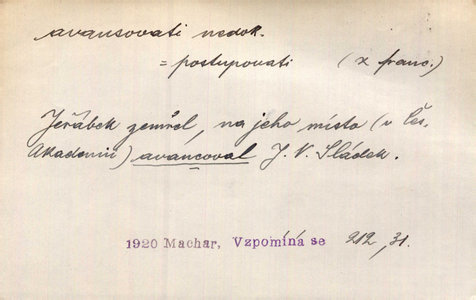 avansovati nedok.
= postupovati (z franc.)
Jeřábek zemřel, na jeho místo (v Čes.
Akademii) avancoval J. V. Sládek.
1920 Machar, Vzpomíná se 212, 31.